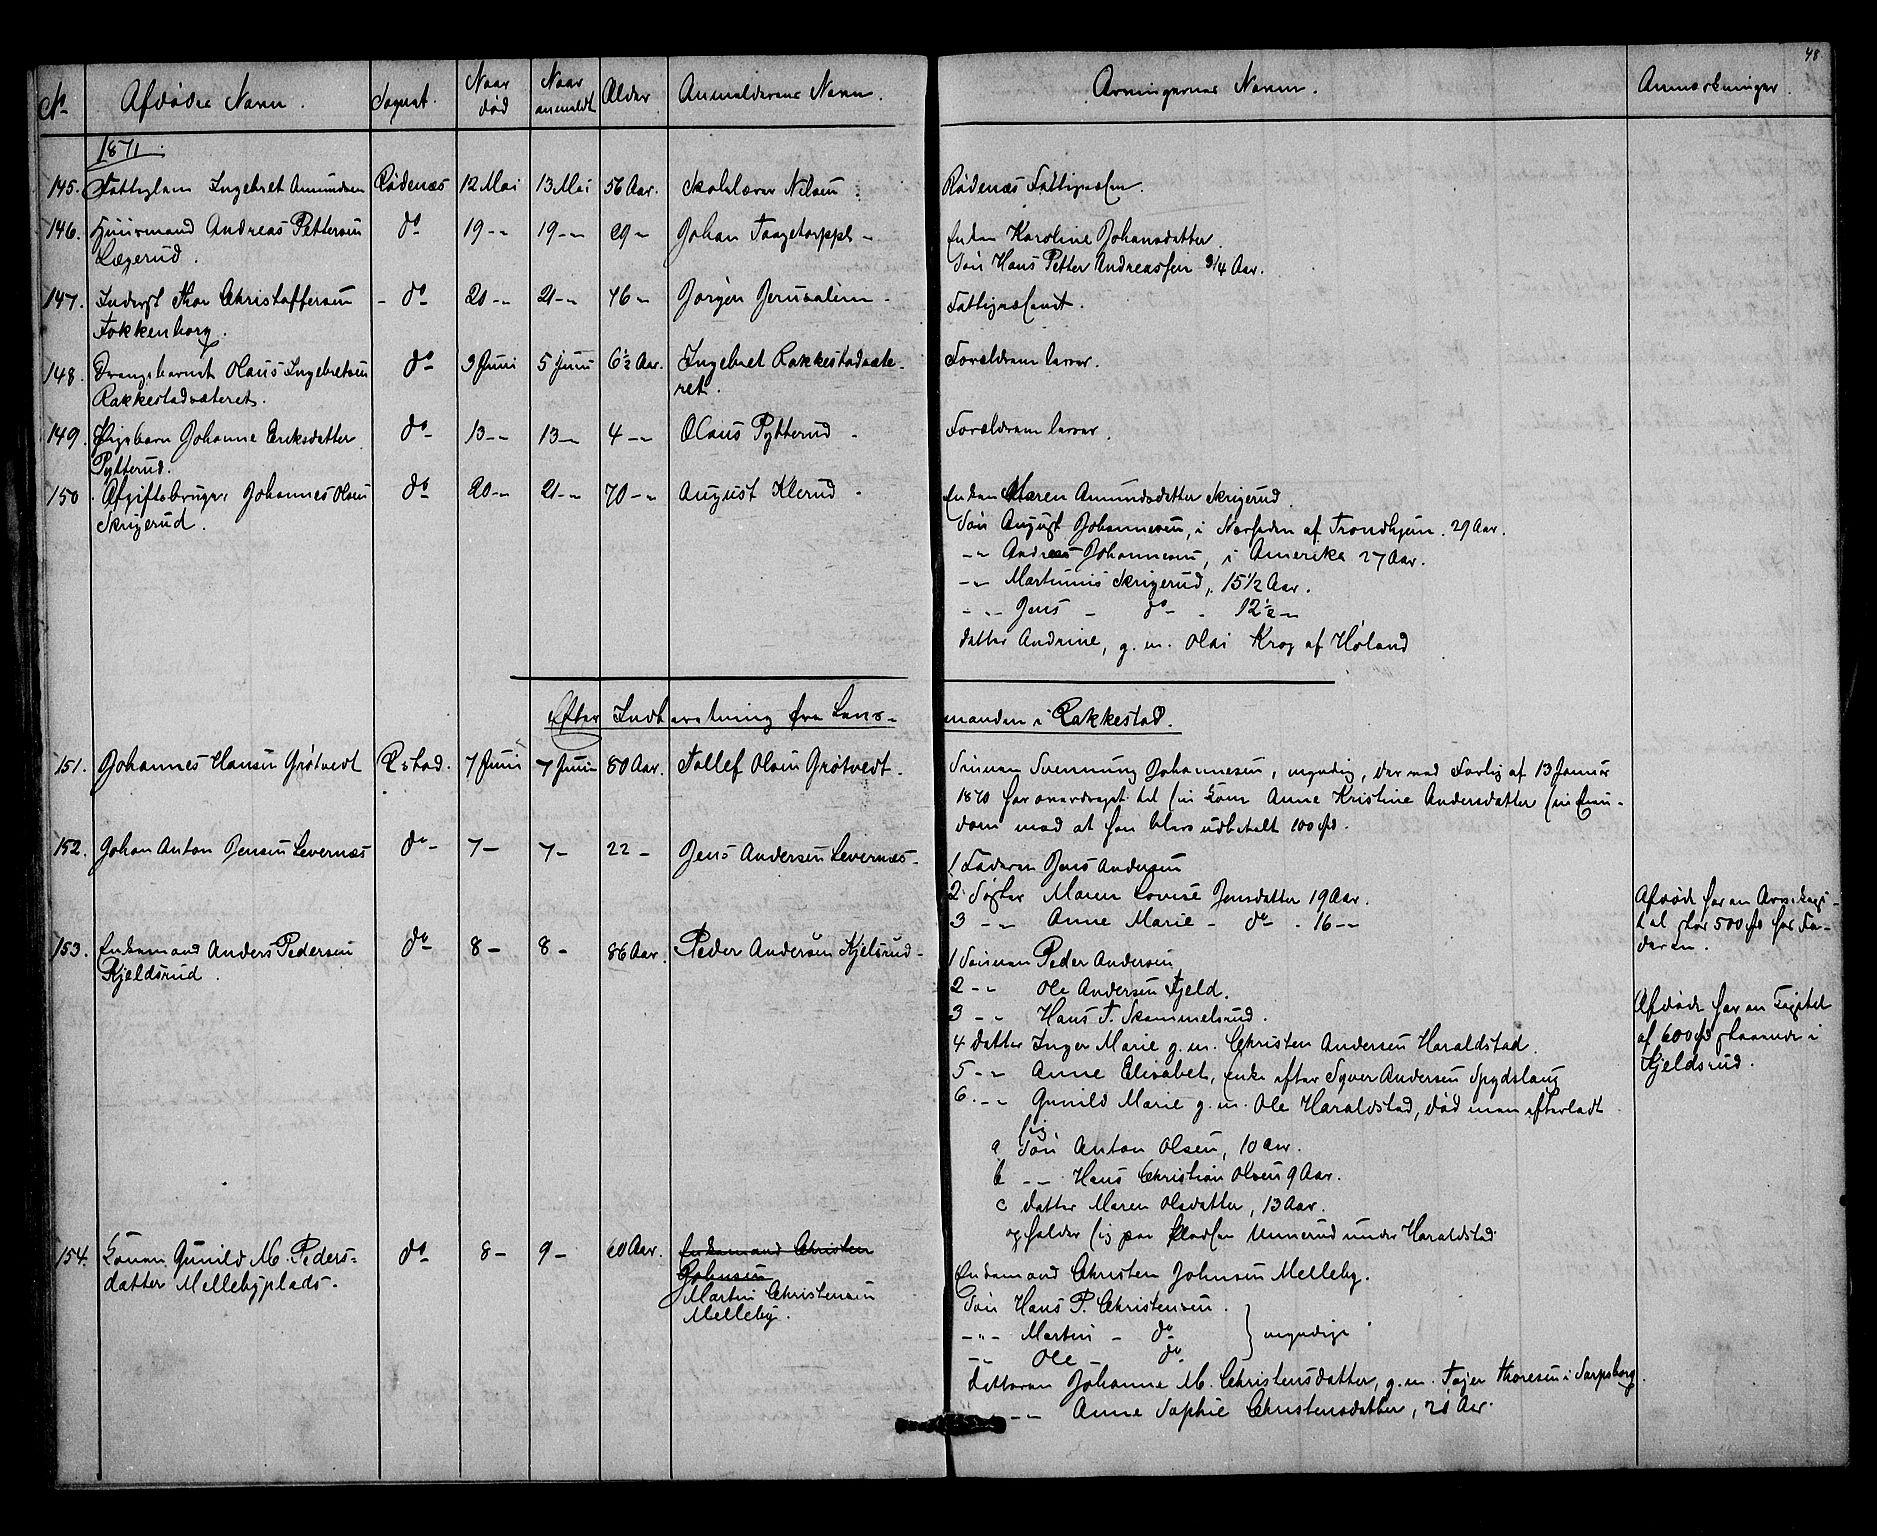 48
No Afdødes Navn. Sognet. Naar død Naar anmeldt Alder Anmelderens Navn. Arvingernes Navn. Anmærkninger
1871.
145. Fattiglem Ingebret Amundsen Rødenæs 12 Mai 13 Mai 56 Aar. Skolelærer Nilsen Rødenæs Fattigvæsen.
146. Huusmand Andreas Pettersen do 19 -"- 19 -"- 29 -"- Johan Taagetorppl - Enken Karoline Johansdatter.
Lægerud. Søn Hans Petter Andreassen 3/4 Aar.
147. Inderst Thor Christoffersen - do 20 -"- 21 -"- 46 -"- Jørgen Jerusalem - Fattigvæsenet.
Fokkenborg.
148. Drengebarnet Olaus Ingebretsen do 3 Juni 5 Juni 6½ Aar. Ingebret Rakkestadsæte- Forældrene lever.
Rakkestadsæteret. ret.
149. Pigebarn Johanne Eriksdatter do 13 -"- 13 -"- 4 -"- Olaus Pytterud - Forældrene lever.
Pytterud.
150. Afgiftsbruger Johannes Olsen do 20 -"- 21 -"- 70 -"- August Klerud - Enken Maren Amundsdatter Skrigerud.
Skrigerud. Søn August Johannesen, i Nærheden af Trondhjem. 29 Aar.
-"- Andreas Johannesen, i Amerika 27 Aar.
-"- Martinius Skrigerud, 15 1/2 Aar.
-"- Jens - do - 12½ -"-
datter Andrine, g. m. Olai Krog af Høland
Efter Indberetning fra Lens- manden i Rakkestad.
151. Johannes Hansen Grøtvedt R.stad. 7 Juni 7 Juni 80 Aar. Tollef Olsen Grøtvedt. Sønnen Svennung Johannesen, myndig, der ved Forlig af 13 Januar
1870 har overdraget til sin Kone Anne Kristine Andersdatter sin Eien-
dom mod at han blev udbetalt 100 spd.
152. Johan Anton Jensen Levernæs do 7 - 7 - 22 - Jens Andersen Levernæs - 1 Faderen Jens Andersen
2 Søster Maren Lovise Jensdatter 19 Aar.
3 -"- Anne Marie - do - 16 -"-
Afdøde har en Arvekapi-
tal stor 500 spd hos Fa-
deren.
153. Enkemand Anders Pedersen do 8 - 8 - 86 Aar. Peder Andersen Kjelsrud - 1 Sønnen Peder Andersen
Kjeldsrud. 2 -"- Ole Andersen Fjeld.
3 -"- Hans T. Skammelsrud.
4 datter Inger Marie g. m. Christen Andersen Haraldstad.
5 -"- Anne Elisabet, enke efter Syver Andersen Spydslaug
6. -"- Gunild Marie g. m. Ole Haraldstad, død men efterladt
sig
a Søn Anton Olsen, 10 Aar.
b -"- Hans Christian Olsen 9 Aar.
c datter Maren Olsdatter, 13 Aar.
og holder sig paa Pladsen Unnerud under Haraldstad.
Afdøde har en Kapital
af 600 spd staaende i
Kjeldsrud.
154. Konen Gunild M. Peders- do 8 - 9 - 60 Aar. Enkemand Christen Enkemand Christen Johnsen Melleby.
datter Mellebyplads. Johnsen Søn Hans P. Christensen.
Martin Christensen -"- Martin - do } myndige
Melleby. -"- Ole - do
datteren Johanne M. Christensdatter, g. m. Tajer Thoresen i Sarpsborg.
-"- Anne Sophie Christensdatter, 21 Aar.